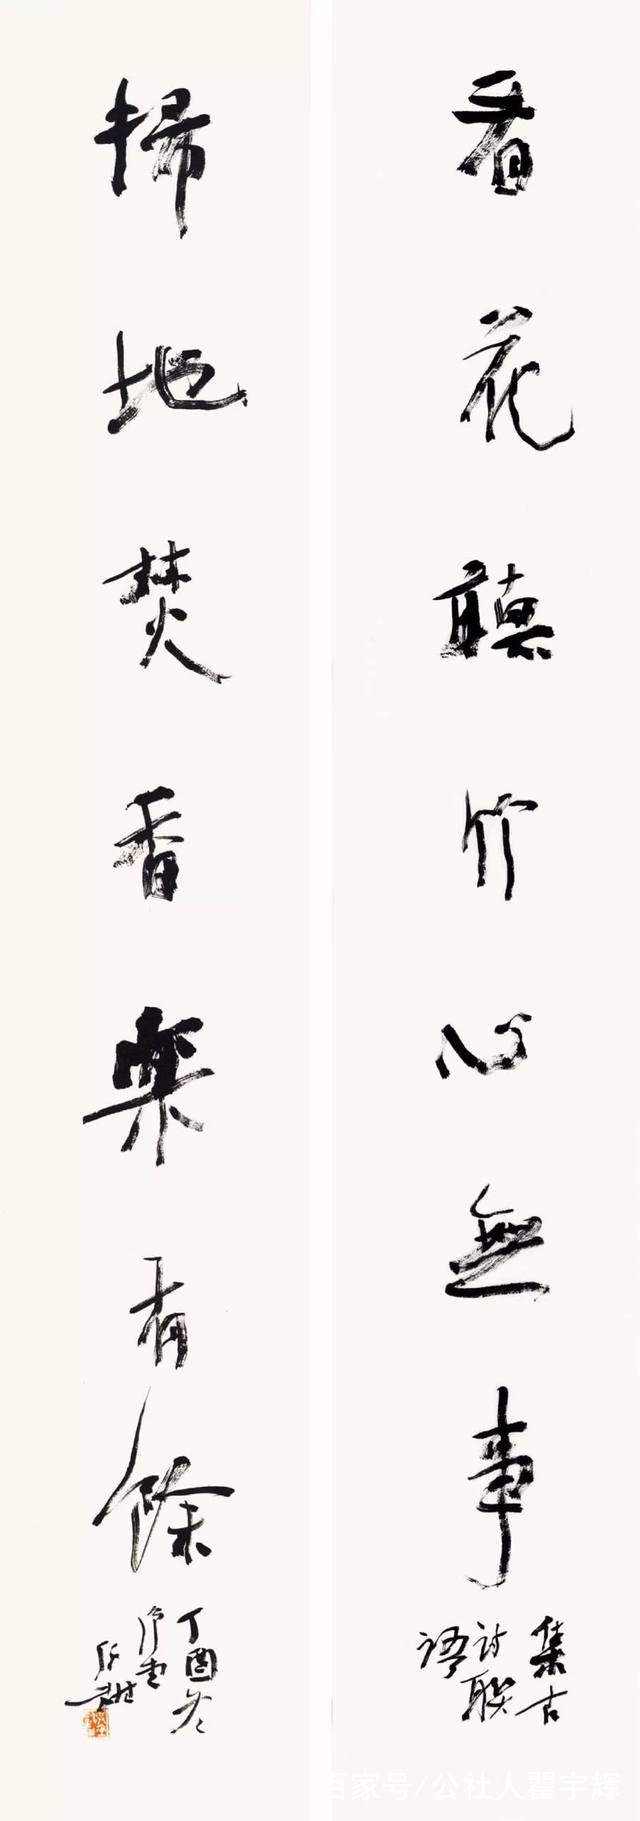 看花聽竹心無事
集古
詩聯
語
掃地焚香樂有餘
丁酉冬
百家号/公社人瞿宇辉